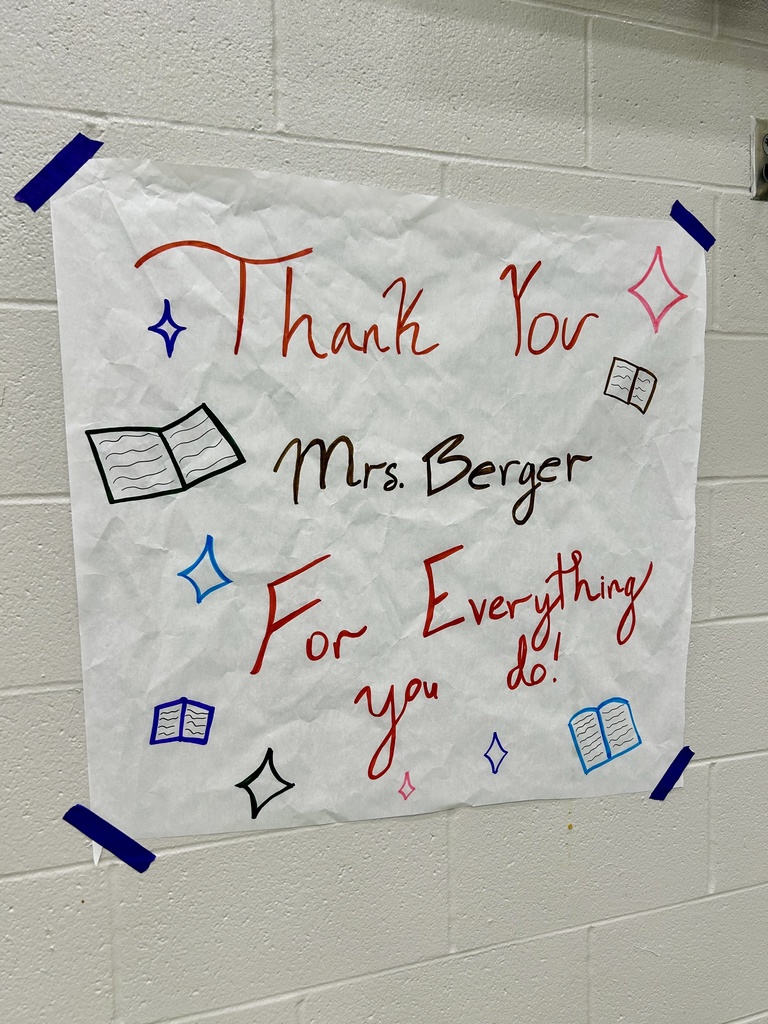 Thank You
Mrs. Berger
For Everything
you do!